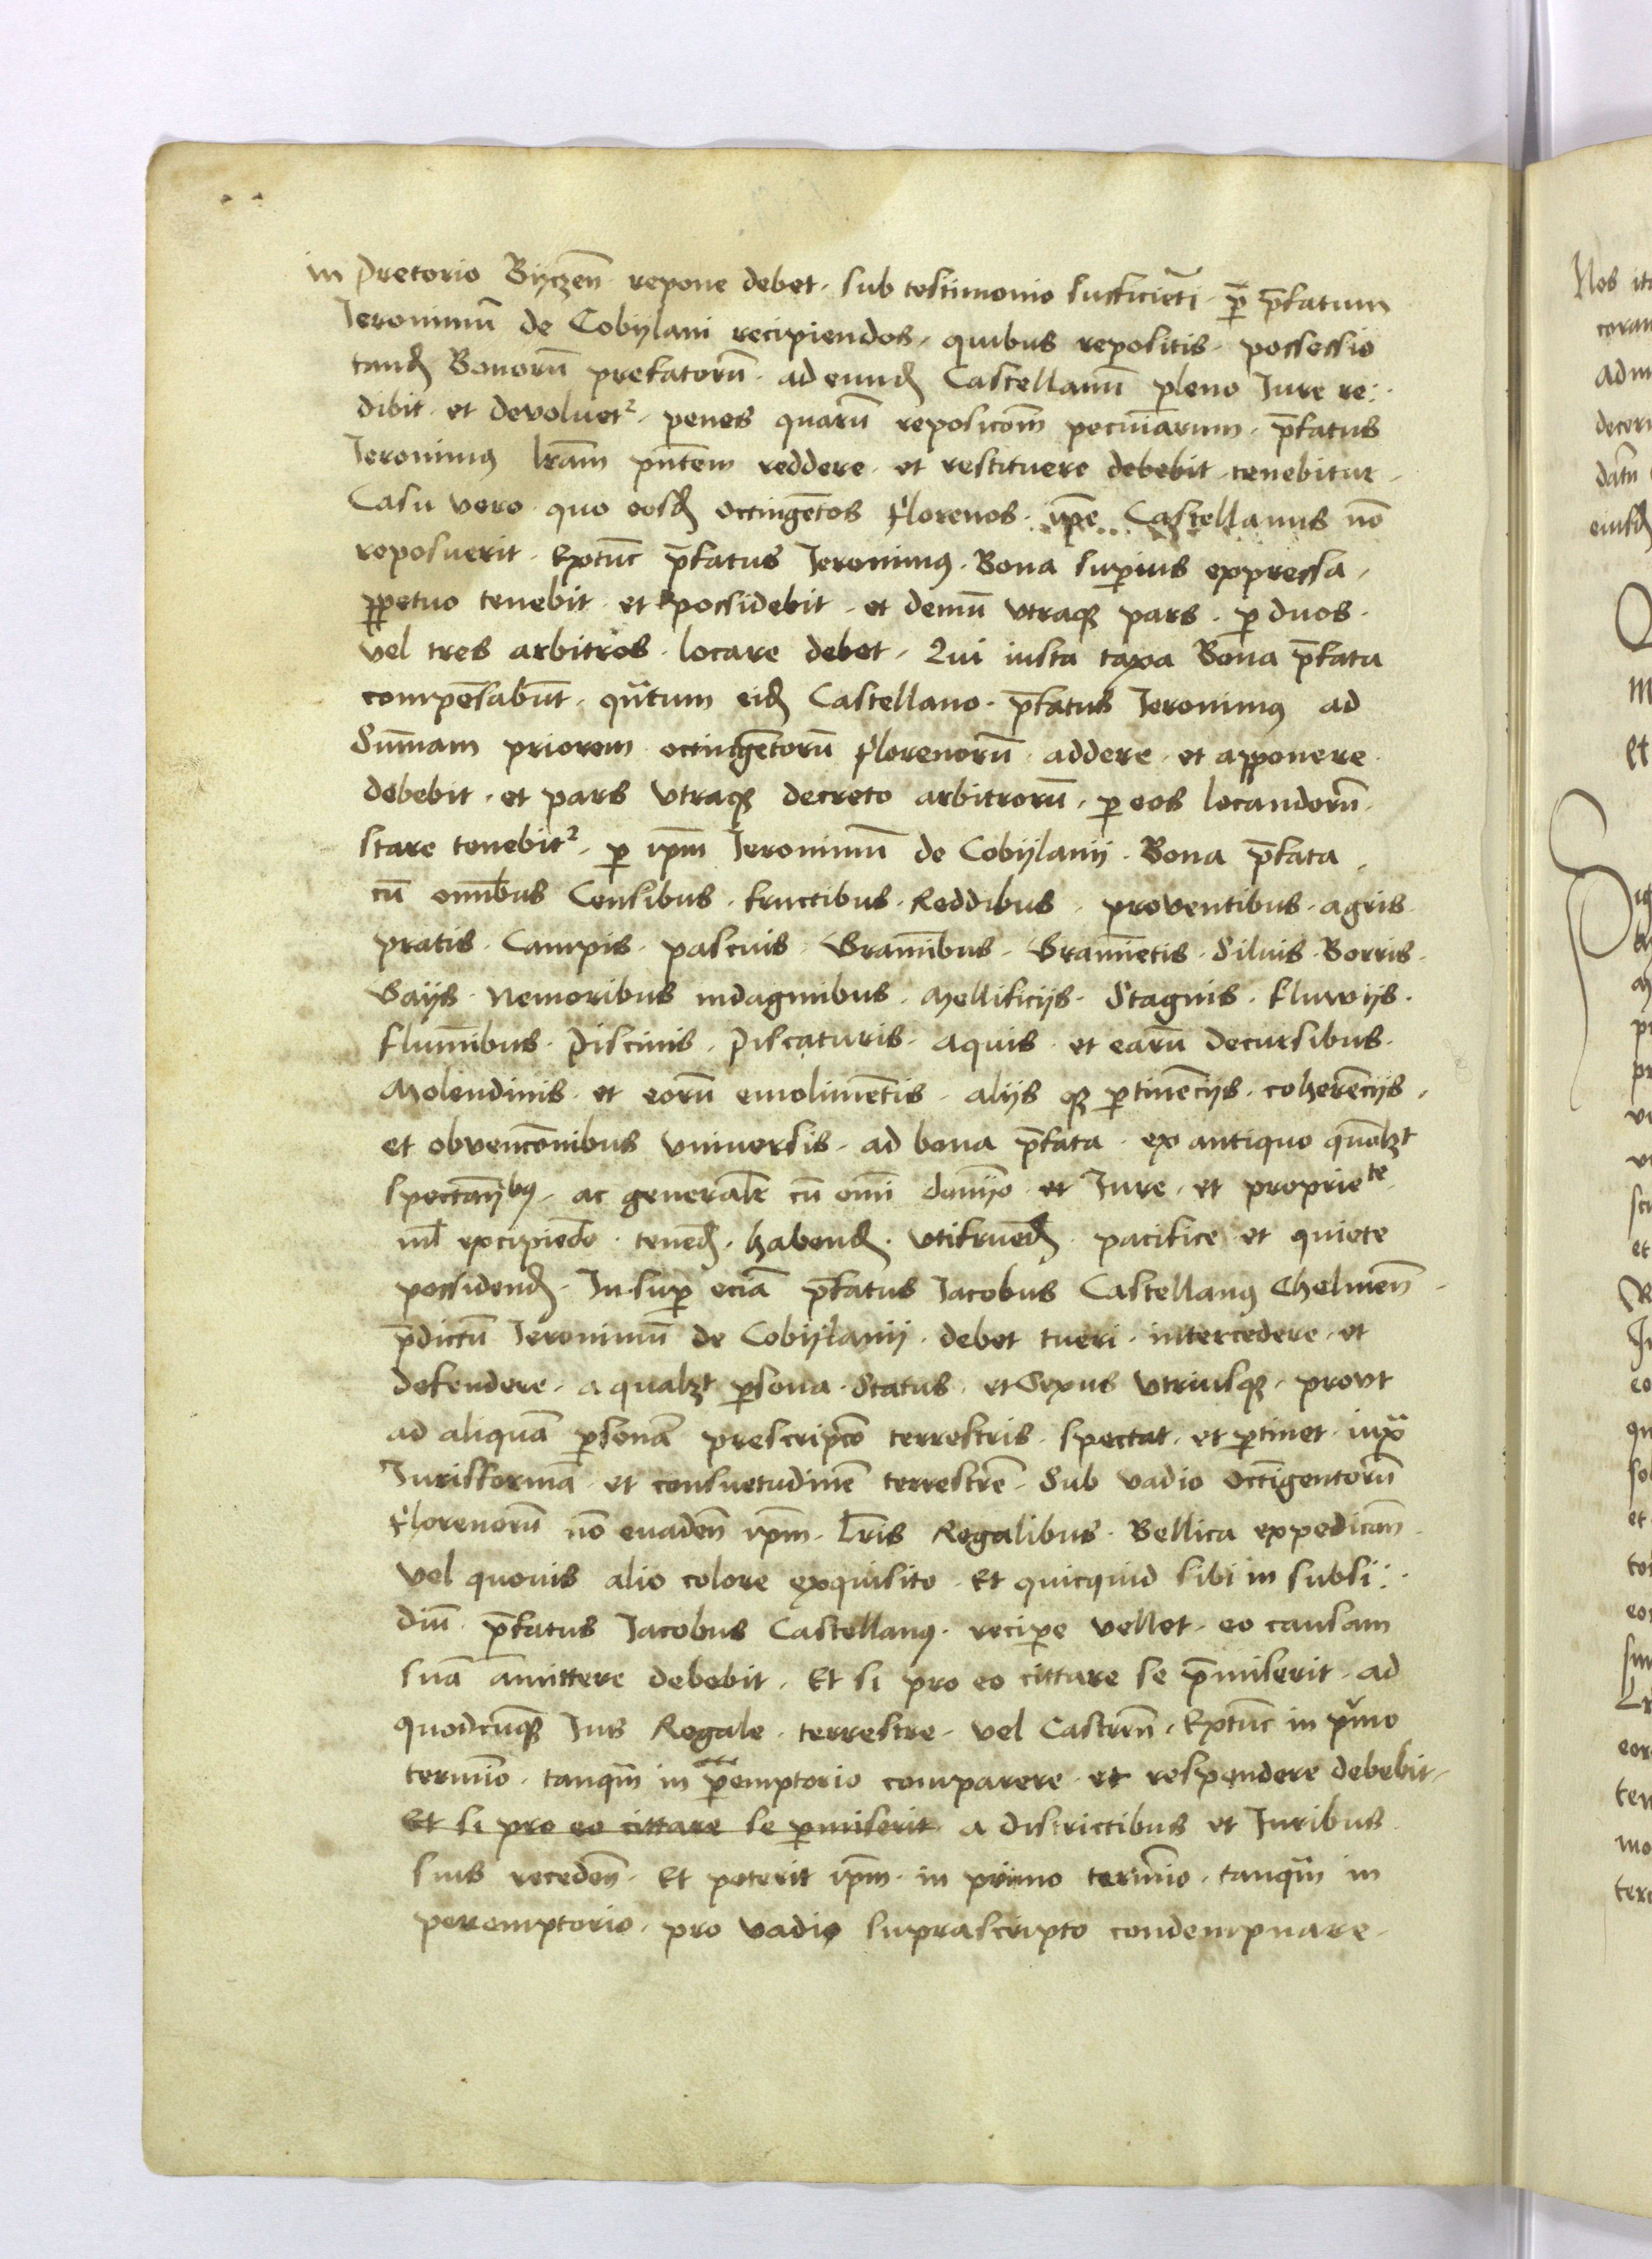 in Pretorio Byczen̄ repone debet · sub testimonio sufficiēti · p̄ p̄fatum
Jeronimū de Cobÿlani recipiendos · quibus repositis · possessio
tandꝫ Bonorū prefatorū · ad eundꝫ Castellanū pleno Jure re:
dibit · et devoluet² · penes quarū reposicōm pecuniarum · p̄fatus
Jeronimꝰ lr̄am pn̄tem reddere · et restituere debebit tenebitur ·
Casu vero quo eosdꝫ octingētos florenos · ip̄e Castellanus nō
reposuerit · Extūc p̄fatus Jeronimꝰ · Bona superius expressa ·
ꝑpetuo tenebit · et possidebit · et demū vtraqꝫ pars · ꝑ duos ·
vel tres arbitros · locare debet · Qui iusta taxa Bona p̄fata
compēsabūt · qn̄tum eidꝫ Castellano · p̄fatus Jeronimꝰ ad
Sūmam priorem octingētorū florenorū · addere · et apponere ·
debebit · et pars vtraqꝫ decreto arbitrorū · ꝑ eos locandorū ·
stare tenebit² · ꝑ ip̄m Jeronimū de Cobÿlanÿ · Bona p̄fata ·
cū om̄ibus Censibus · fructibus · Reddibus · proventibus · agris ·
pratis · Campis · pascuis · Gramībus · Gramīetis · Siluis · Borris ·
Gaÿs · Nemoribus indaginibus · Mellificÿs · Stagnis · fluvÿs ·
flumībus · Piscinis · Piscaturis · aquis · et earū decursibus ·
Molendinis · et eorū emolimētis · alÿs qꝫ ꝑtinēcÿs · coherēcÿs ·
et obvencōnibus vniversis · ad bona p̄fata · ex antiquo qūolꝫt
spectan̄bꝰ · ac generalr̄ cū om̄i domīo et Jure · et propriete ·
nil̄ excipiēdo · tenēdꝫ · habendꝫ · vtifruēdꝫ · pacifice et quiete
possidendꝫ · In suꝑ eciā p̄fatus Jacobus Castellanꝰ Chelmen̄ ·
p̄dictū Jeronimū de Cobÿlanÿ · debet tueri · intercedere · et
defendere · a qualꝫt ꝑsona · Status · et Sexus vtriusqꝫ · provt
ad aliquā ꝑsonā prescripcō terrestris · spectat · et ꝑtinet · iuxͣ
Juris formā · et consuetudinē terrestrē · Sub vadio octīgentorū
florenorū nō evaden̄ ip̄m · Lr̄is Regalibus · Bellica expedican̄ ·
vel quovis alio colore exquisito · Et quicquid sibi in subsi:
diū · p̄fatus Jacobus Castellanꝰ · recipe vellet · eo causam
suā āmittere debebit · Et si pro eo cittare se p̄miserit · ad
quodcūqꝫ Jus Regale · terrestre · vel Castren̄ · Extūc in pͥmo
termīo · tanqͣm in ꝑemptorio comparere · et respondere debebit ·
Et si pro eo cittare se ꝑmiserit a districtibus et Juribus ·
suis receden̄ · Et poterit ip̄m · in primo termīo · tanqͣm in
peremptorio · pro vadio suprascripto condempnare ·